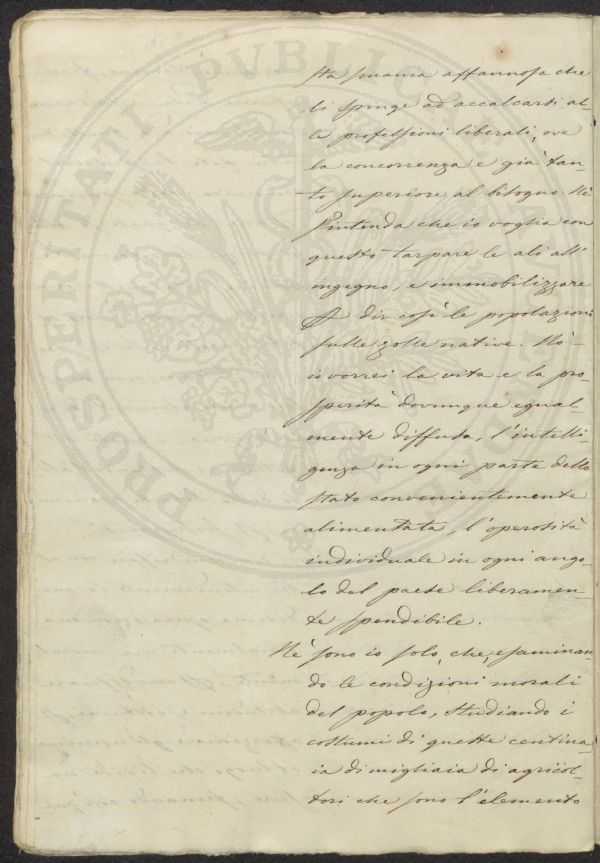 sta smania affannosa che
li spinge ad accalcarsi al-
le professioni liberali, ove
la concorrenza è già tan-
to superiore al bisogno. Nè
s'intenda che io voglia con
questo tarpare le ali all'
ingegno, e immobilizzare
dir così le popolazioni
sulle zolle native. No -
io vorrei la vita e la pro-
sperità dovunque egual-
mente diffusa, l'intelli-
genza in ogni parte dello
stato convenientemente
alimentata, l'operosità
individuale in ogni ango-
lo del paese liberamen-
te spendibile.
Nè sono io solo, che, esaminan-
do le condizioni morali
del popolo, studiando i
costumi di queste centina-
ia di migliaia di agricol-
tori che sono l'elemento
PROSPERITATI PVBLICAE